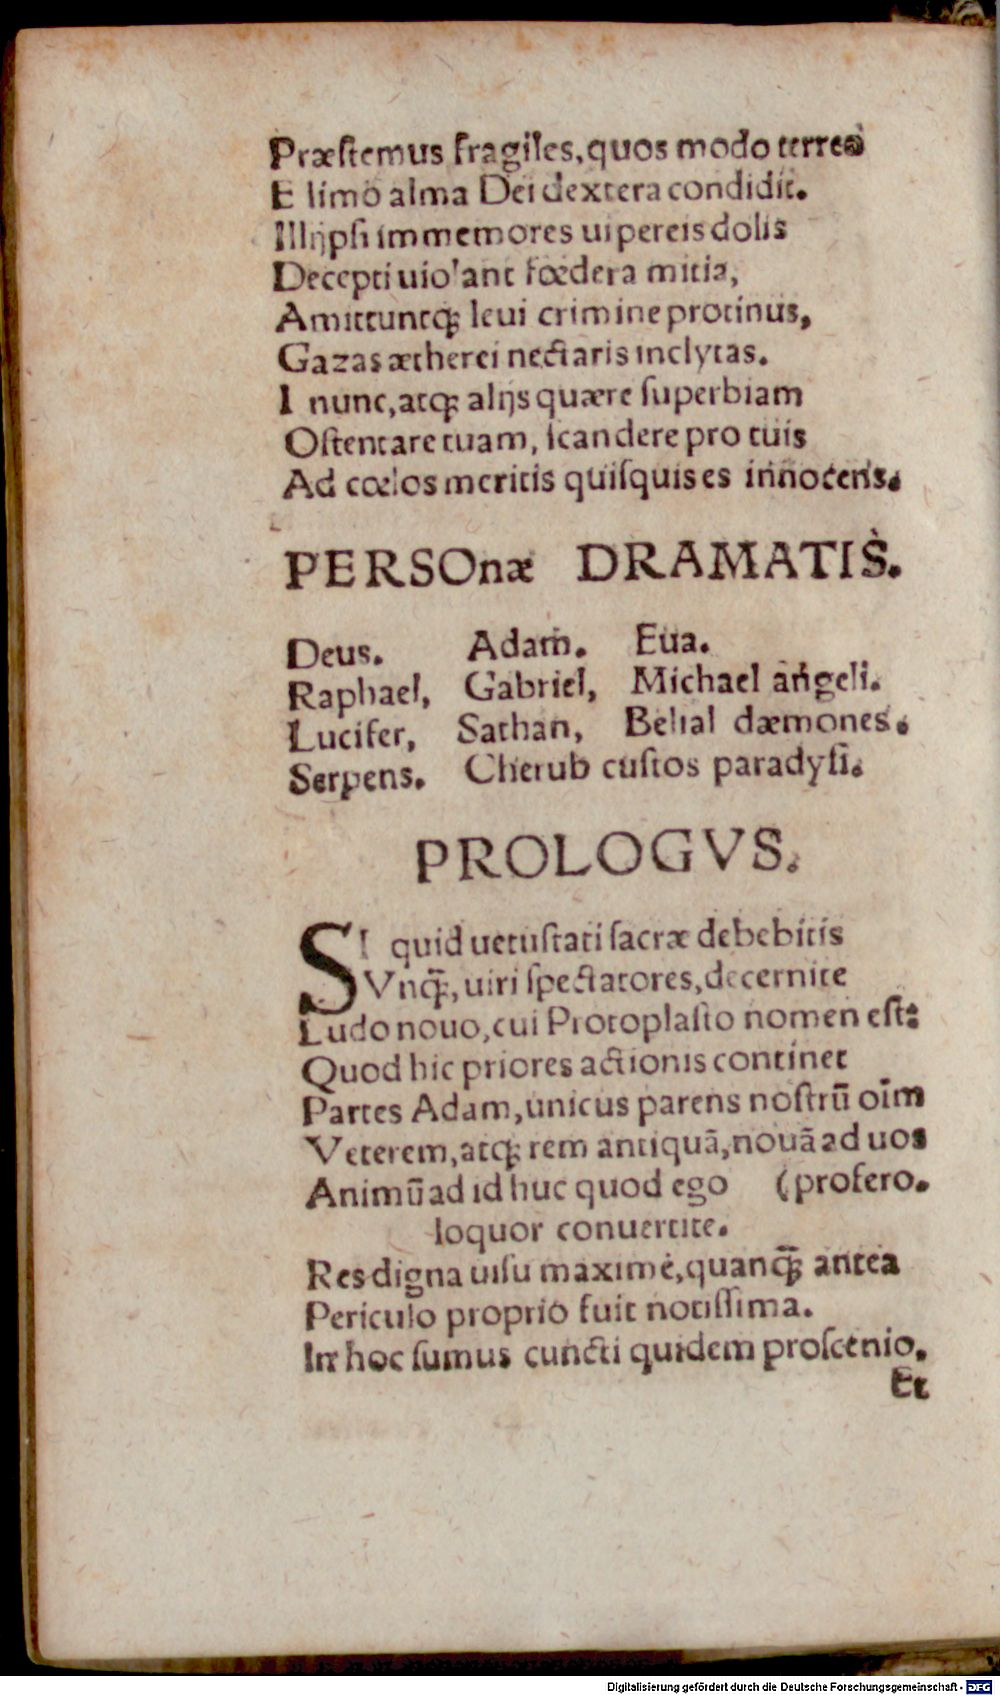 Præſtemus fragiles, quos modo terreo
E limo alma Dei dextera condidit.
Illi ipſi immemores uipereis dolis
Decepti uiolant fœdera mitia,
Amittuntq; leui crimine protinus,
Gazas ætherei nectaris inclytas.
I nunc, atq; alijs quære ſuperbiam
Oſtentare tuam, ſcandere pro tuis
Ad cœlos meritis quiſquis es innocens.
PERSOnæ DRAMATIS.
Deus. Adam. Eua.
Raphael, Gabriel, Michael angeli.
Lucifer, Sathan, Belial dæmones.
Serpens. Cherub cuſtos paradyſi.
PROLOGVS.
SI quid uetuſtati ſacræ debebitis
Vnq̃, uiri ſpectatores, decernite
Ludo nouo, cui Protoplaſto nomen eſt:
Quod hic priores actionis continet
Partes Adam, unicus parens noſtrũ oĩm
Veterem, atq; rem antiquã, nouã ad uos
Animũ ad id huc quod ego (profero.
loquor conuertite.
Res digna uiſu maximè, quanq̃ antea
Periculo proprio fuit notiſſima.
In hoc ſumus cuncti quidem proſcenio.
Et
Digitalisierung gefördert durch die Deutsche Forschungsgemeinschaft - DFG